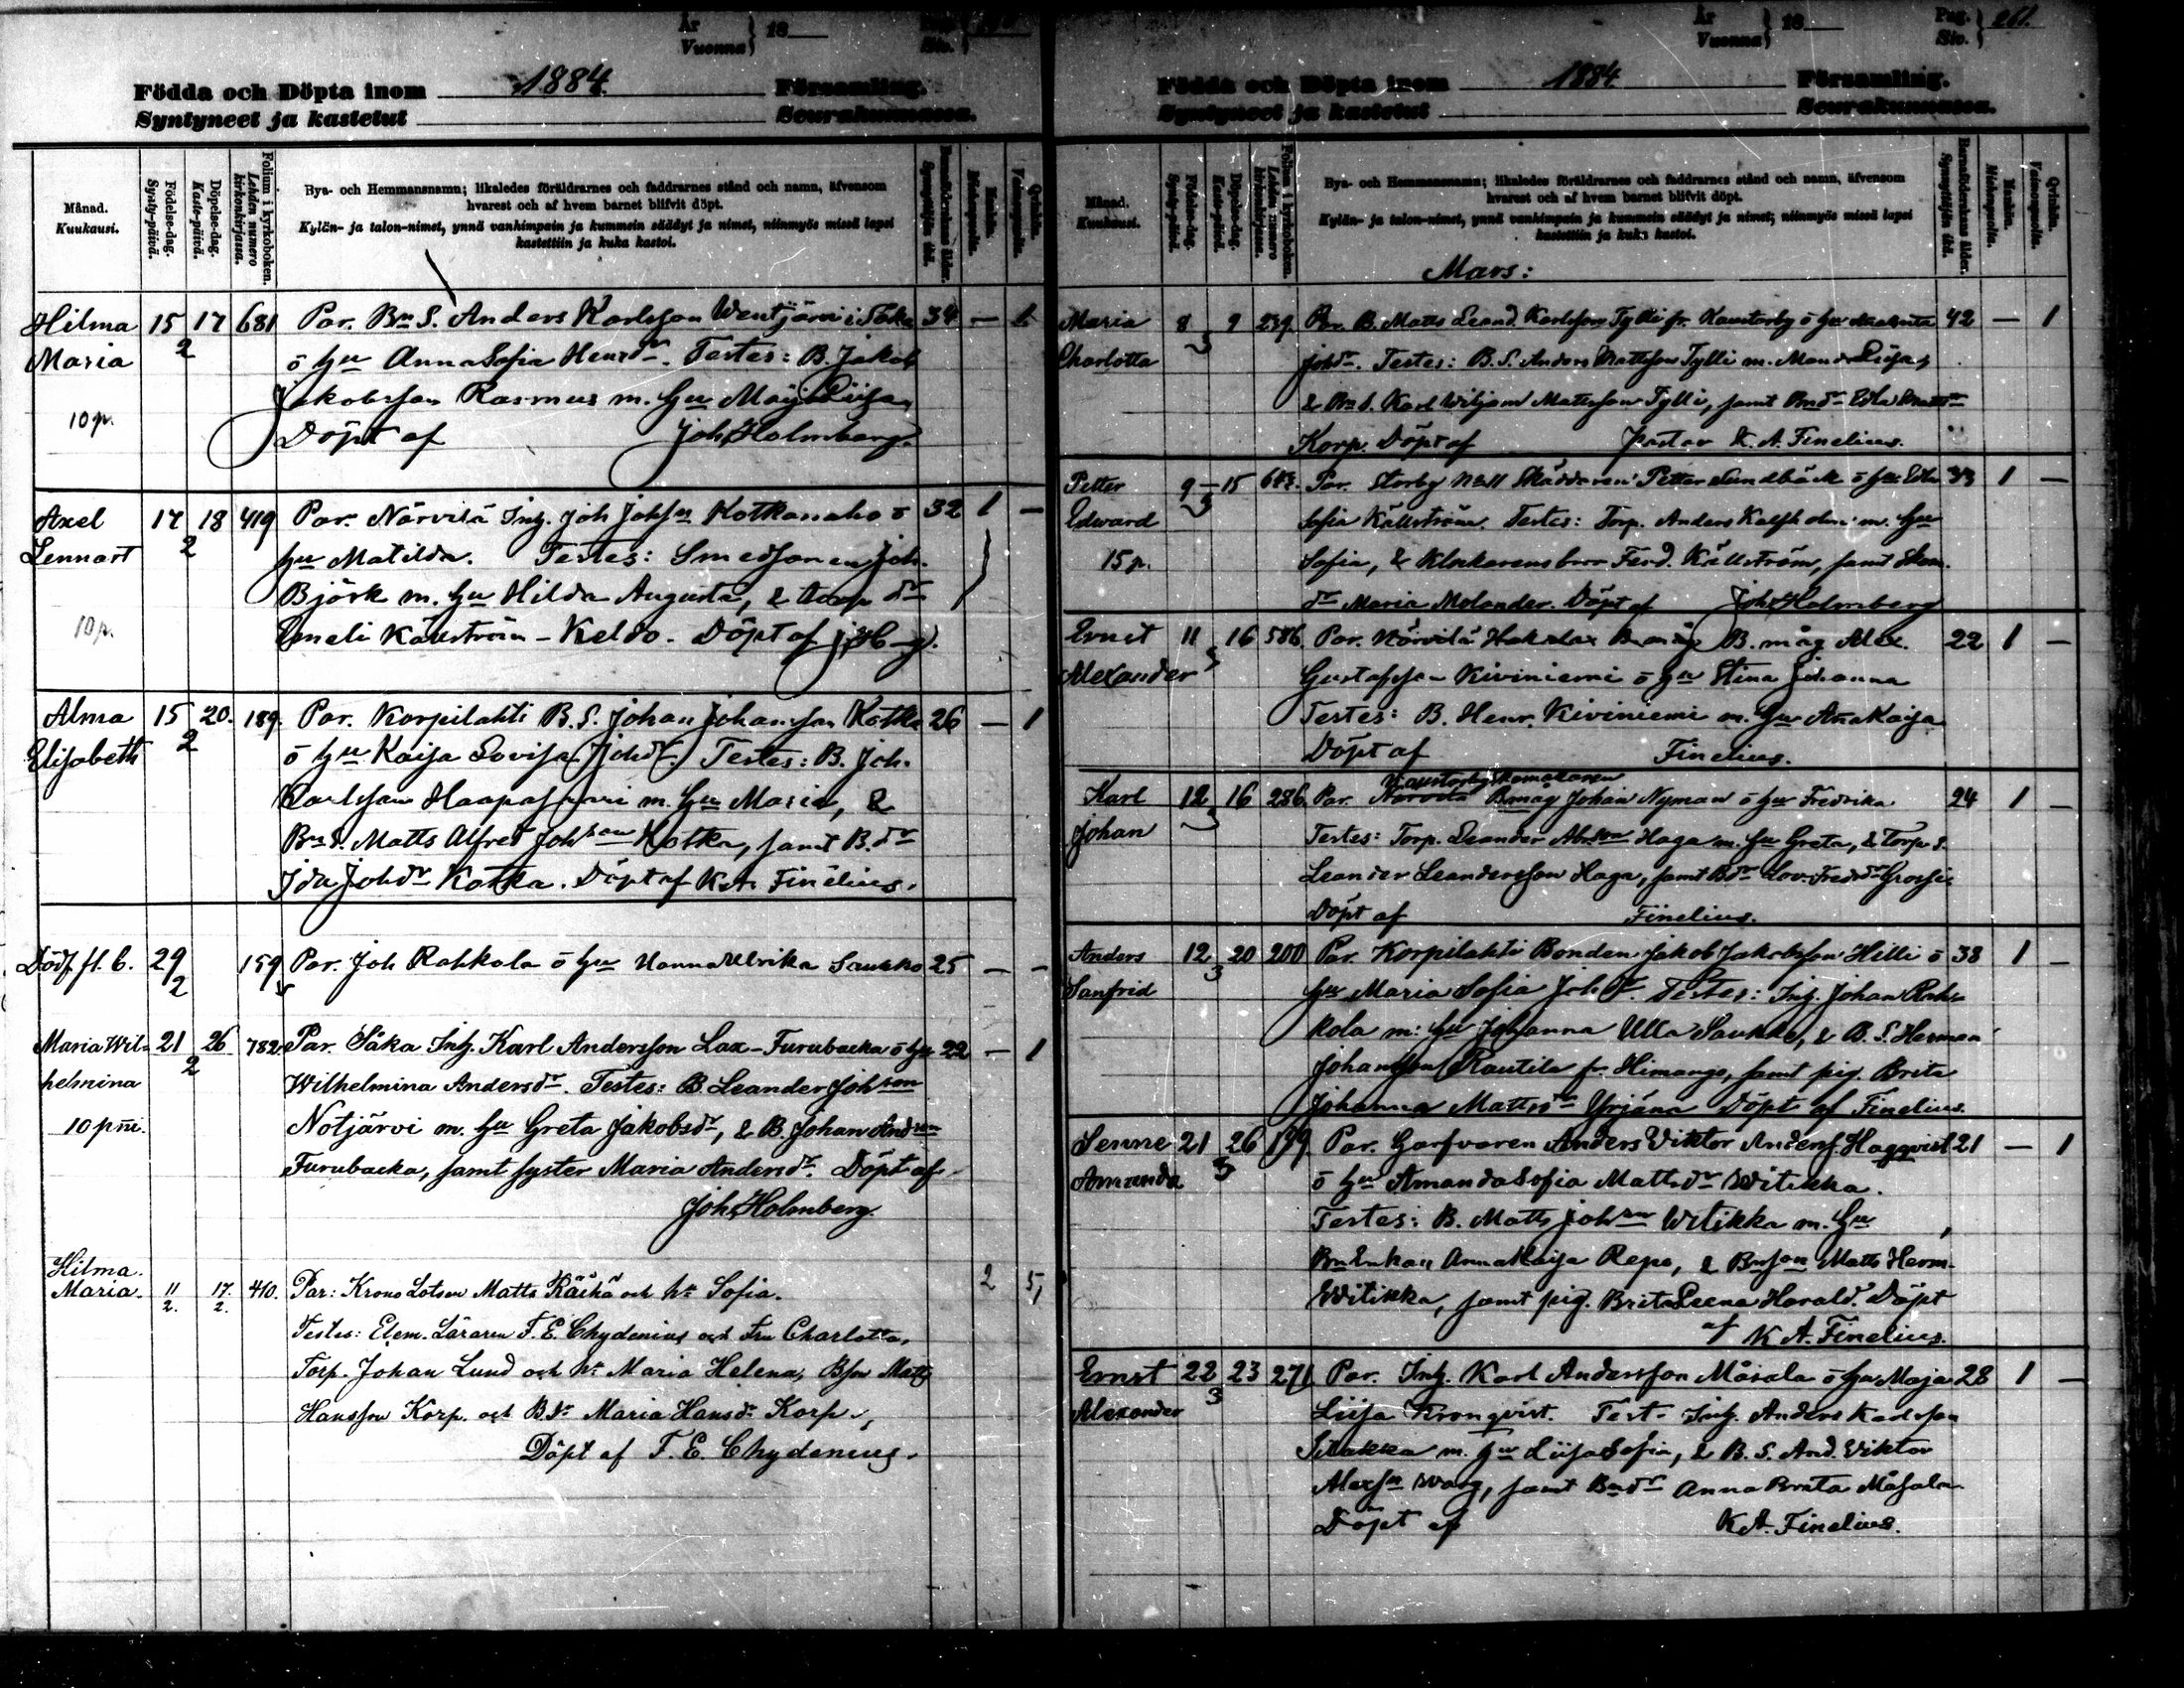 År 18
Vuonna
Siv.
Födda och Döpta inom 1884 Församling.
Syntyneet ja kastetut Seurakunnassa.
Månad.
Kuukausi.
Födelse-dag.
Synty-päivä.
Döpelse-dag.
Kaste-päivä.
Folium i kyrkoboken.
Lehden numero kirkonkirjassa.
Bya- och Hemmansnamn; likaledes föräldrarnes och faddrarnes stånd och namn, äfvensom
hvarest och af hvem barnet blifvit döpt.
Kylän- ja talon-nimet, ynnä vanhimpain ja kummein säädyt ja nimet, niinmyös missä lapsi
kastettiin ja kuka kastoi.
Barnaföderskans ålder.
Synnyttäjän ikä.
Mankön.
Miehenpuolta.
Qvinkön.
Vaimonpuolta.
Hilma 15 17 681 Par. Bn S. Anders Karlsson Wentjärvi i Såka 34 — 1
Maria 2 ö hu Anna Sofia Henrdr. Testes: B. Jakob
Jakobsson Rasmus m. hu Maija Liisa
10 p. Döpt af Joh. Holmberg.
Axel 17 18 419 Par. Närvilä Inh. Joh Johsn Kotkanaho ö 32 1 —
Lennart 2 hu Matilda. Testes: Smedsonen Joh.
Björk m. hu Hilda Augusta, & dr
10 p. Emeli Källström - Keldo. Döpt af J. H-g.
Alma 15 20. 189. Par. Korpilahti B. S. Johan Johansson Kotka 26 — 1
Elisabeth 2 ö hu Kaisa Lovisa Johdr. Testes: B. Joh.
Karlsson Haapasaari m. hu Maria, &
Bn S. Matts Alfred Johson Kotka, samt B. dr
Ida Johdr Kotka. Döpt af K A. Finelius.
Dödf. fl. b. 29 2 159 Par. Joh Rahkola ö hu Hanna Ulrika Saukko 25 — —
Maria Wil- 21 26 782 Par. Såka Inh. Karl Andersson Lax-Furubacka ö hu 22 — 1
helmina 2 Wilhelmina Andersdr. Testes: B Leander Johson
10 pni. Notjärvi m. hu Greta Jakobsdr, & B. Johan Andson
Furubacka, samt syster Maria Andersdr. Döpt af
Joh. Holmberg.
Hilma
Maria. 11 2. 17. 2. 410. Par: Krono Lotsen Matts Räihä och h:u Sofia. 2 5
Testes: Elem. Läraren F. E. Chydenius och Fru Charlotta,
Torp. Johan Lund och h:u Maria Helena, Bson Matts
Hansson Korp. och B.dr Maria Hansdr Korp.,
Döpt af F. E. Chydenius.
År 18
Vuonna
Pag. 261.
Siv.
Födda och Döpta inom 1884 Församling.
Syntyneet ja kastetut Seurakunnassa.
Månad.
Kuukausi.
Födelse-dag.
Synty-päivä.
Döpelse-dag.
Kaste-päivä.
Folium i kyrkoboken.
Lehden numero kirkonkirjassa.
Bya- och Hemmansnamn; likaledes föräldrarnes och faddrarnes stånd och namn, äfvensom
hvarest och af hvem barnet blifvit döpt.
Kylän- ja talon-nimet, ynnä vanhimpain ja kummein säädyt ja nimet, niinmyös missä lapsi
kastettiin ja kuka kastoi.
Barnaföderskans ålder.
Synnyttäjän ikä.
Mankön.
Miehenpuolta.
Qvinkön.
Vaimonpuolta.
Mars:
Maria 8 3 9 239 Par. B. Matts Leand. Karlsson Tylli fr. Kaustarby ö hu 42 — 1
Charlotta Johdr. Testes: B. S. Anders Mattsson Tylli m.
& Bn S. Karl Wiljam Mattsson Tylli, samt Bndr
Korp. Döpt af Pastor K. A. Finelius.
Petter 9 3 15 643. Par. Storby No 11 Skäddaren Petter Sundbäck ö hu 1 —
Edward Sofia Källström. Testes: Torp. Anders Kalfholm m. hu
15 p. Sofia, & Klockarens bror Ferd. Källström, samt Skom.
dr Maria Molander. Döpt af Joh. Holmberg
Ernst 11 3 16 586. Par. Närvilä B. måg Alex. 22 1 —
Alexander Gustafsson Kiviniemi ö hu Stina Johanna
Testes: B. Henr. Kiviniemi m. hu Anna Kaisa
Döpt af Finelius.
Kaustarby Skomakaren
Karl 12 3 16 286. Par. Närvilä Bmåg Johan Nyman ö hu Fredrika 24 1 —
Johan Testes: Torp. Leander Abr.son Haga m. hu Greta, & Torp S.
Leander Leandersson Haga, samt Bdr Lov. Freddr
Döpt af Finelius.
Anders 12 3 20 200 Par. Korpilahti Bonden Jakob Jakobsson Hilli ö 38 1 —
Sanfrid hu Maria Sofia Johdr. Testes: Inh. Johan Rah-
kola m: hu Johanna Ulla Saukko, & B. S. Herman
Johansson Rautila fr. Himango, samt pig. Brita
Johanna Mattsdr Yrjänä Döpt af Finelius.
Senne 21 3 26 139 Par. Garfvaren Anders Viktor Anderss. Hagqvist 21 — 1
Amanda ö hu Amanda Sofia Mattsdr Witikka.
Testes: B. Matts Johson Witikka m. hu,
Bn Enkan Anna Kaisa Repo, & Bnson Matts Herm.
Witikka, samt pig. Brita Leena Harald. Döpt
af K A. Finelius.
Ernst 22 3 23 271 Par. Inh. Karl Andersson Måsala ö hu Maja 28 1 —
Alexander Liisa Kronqvist. Test- Inh. Anders Karlsson
m. hu Liisa Sofia, & B. S. And. Viktor
Alexsn Warg, samt Bndr Anna Brita Måsala
Döpt af K A. Finelius.